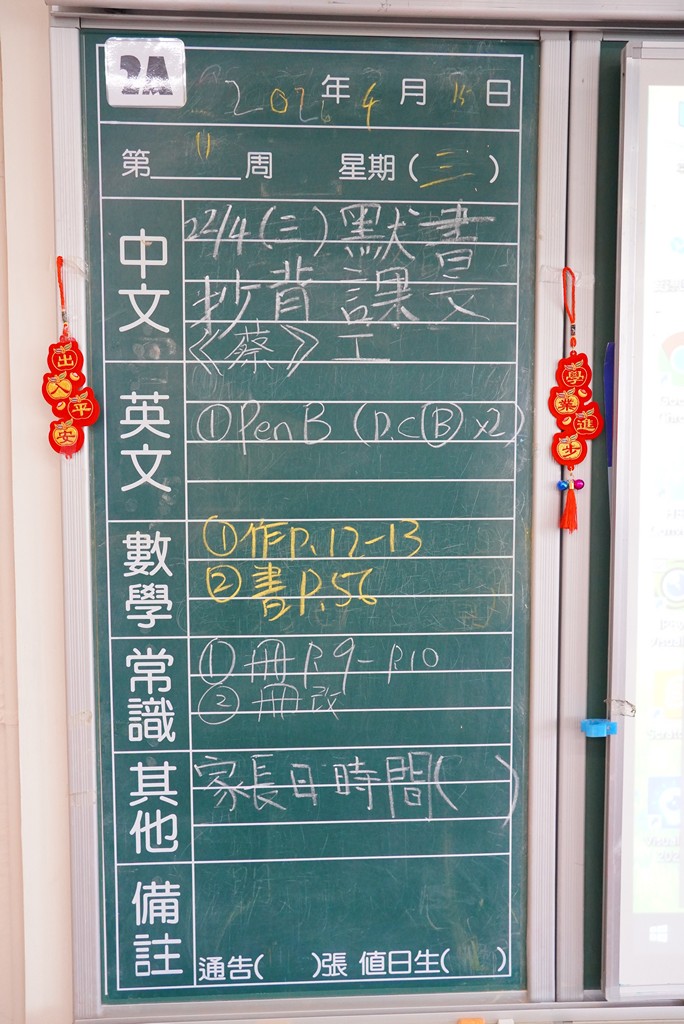 2A
2026年4月15日
第 11 周 星期(三)
中文
22/4(三)默書
抄背課文
《蔡》工
英文
①Pen B (P.C Ⓑ x2)
數學
①作P.12-13
②書P.56
常識
①冊P.9-P.10
②冊改
其他
家長日時間( )
備註
通告( )張 值日生( )
出入平安
學業進步